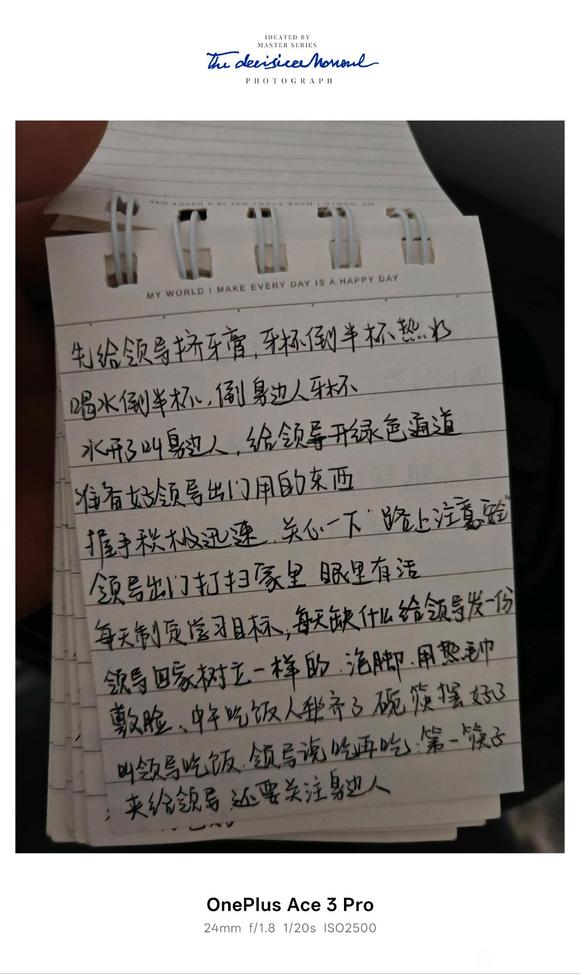 IDEATED BY
MASTER SERIES
The decisive Moment
PHOTOGRAPH
MY WORLD I MAKE EVERY DAY IS A HAPPY DAY
MY WORLD I MAKE EVERY DAY IS A HAPPY DAY
先给领导挤牙膏,牙杯倒半杯热水
喝水倒半杯,倒身边人牙杯
水开了叫身边人,给领导开绿色通道
准备好领导出门用的东西
握手积极迅速.关心一下“路上注意安全”
领导出门打扫家里 眼里有活
每天制定学习目标,每天缺什么给领导发一份
领导回家树立一样的.泡脚.用热毛巾
敷脸、中午吃饭人都齐了碗筷摆好了
叫领导吃饭.领导说吃再吃.第一筷子
夹给领导 还要关注身边人
OnePlus Ace 3 Pro
24mm f/1.8 1/20s ISO2500